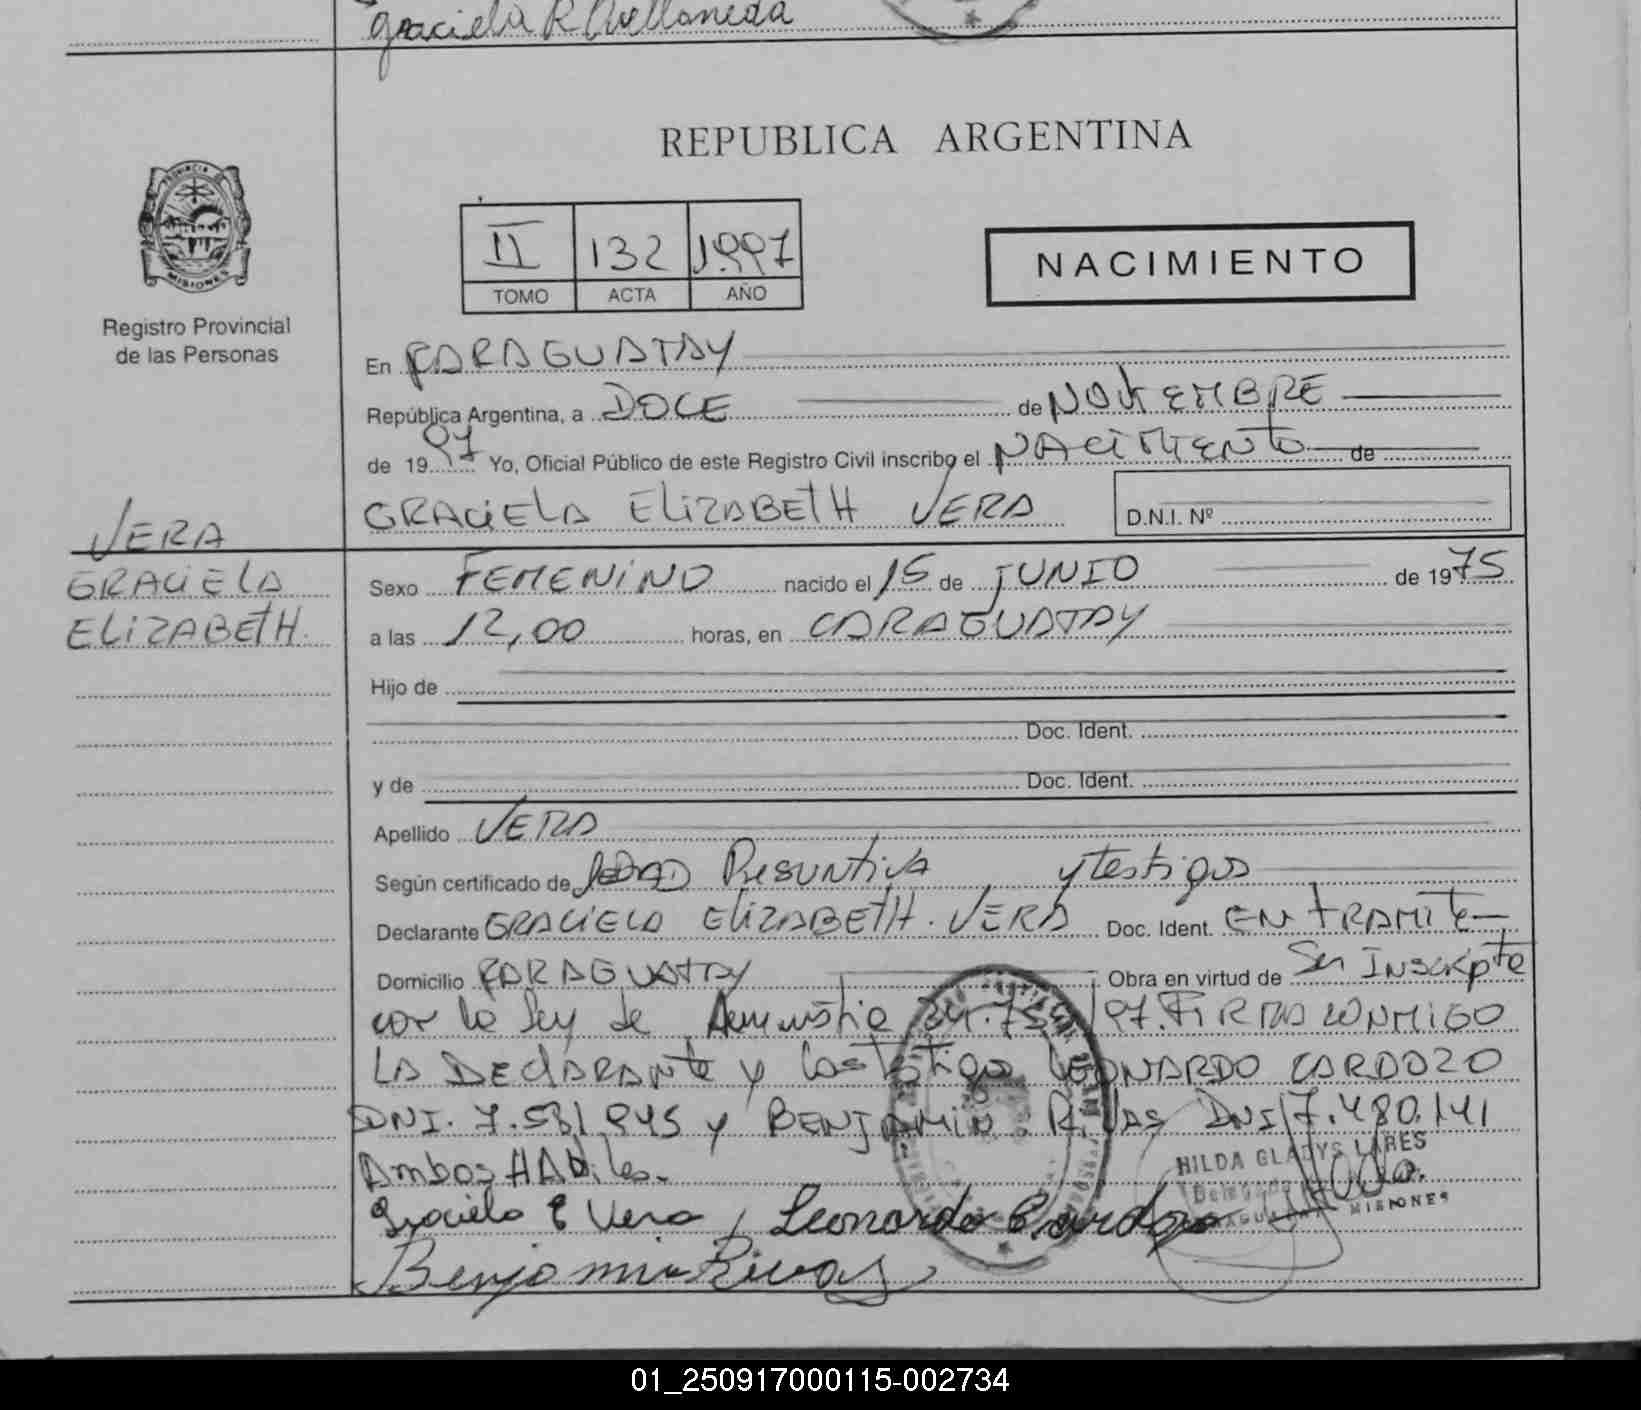 Graciela R Avellaneda
REPUBLICA ARGENTINA
PROVINCIA DE
MISIONES
Registro Provincial
de las Personas
II 132 1.997
TOMO ACTA AÑO
NACIMIENTO
En CARAGUATAY
República Argentina, a DOCE de NOVIEMBRE
de 1997 Yo, Oficial Público de este Registro Civil inscribo el NACIMIENTO de
GRACIELA ELIZABETH VERA D.N.I. Nº
VERA
GRACIELA
ELIZABETH.
Sexo FEMENINO nacido el 15 de JUNIO de 1975
a las 12,00 horas, en CARAGUATAY
Hijo de
Doc. Ident.
y de Doc. Ident.
Apellido VERA
Según certificado de EDAD Presuntiva y testigos
Declarante GRACIELA ELIZABETH. VERA Doc. Ident. EN TRAMITE
Domicilio CARAGUATAY Obra en virtud de Ser Inscripta
por la ley de Amnistia 24.755/97. FIRMAN CONMIGO
LA DEclARANte y los testigos LEONARDO CARDOZO
DNI. 7.531.945 y BENJAMIN RIVAS DNI 7.480.141
Ambos HABiles.
HILDA GLADYS LARES
Delegada
CARAGUATAY MISIONES
Graciela E Vera, Leonardo Cardozo
Benjamin Rivas
01_250917000115-002734